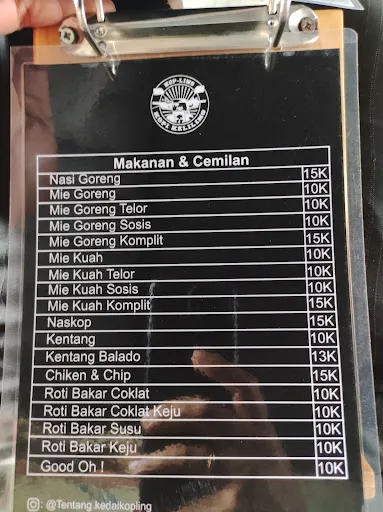 KOP-LING
KOPI KELILING
Makanan & Cemilan
Nasi Goreng 15K
Mie Goreng 10K
Mie Goreng Telor 10K
Mie Goreng Sosis 10K
Mie Goreng Komplit 15K
Mie Kuah 10K
Mie Kuah Telor 10K
Mie Kuah Sosis 10K
Mie Kuah Komplit 15K
Naskop 15K
Kentang 10K
Kentang Balado 13K
Chiken & Chip 15K
Roti Bakar Coklat 10K
Roti Bakar Coklat Keju 10K
Roti Bakar Susu 10K
Roti Bakar Keju 10K
Good Oh ! 10K
: @Tentang.kedaikopling